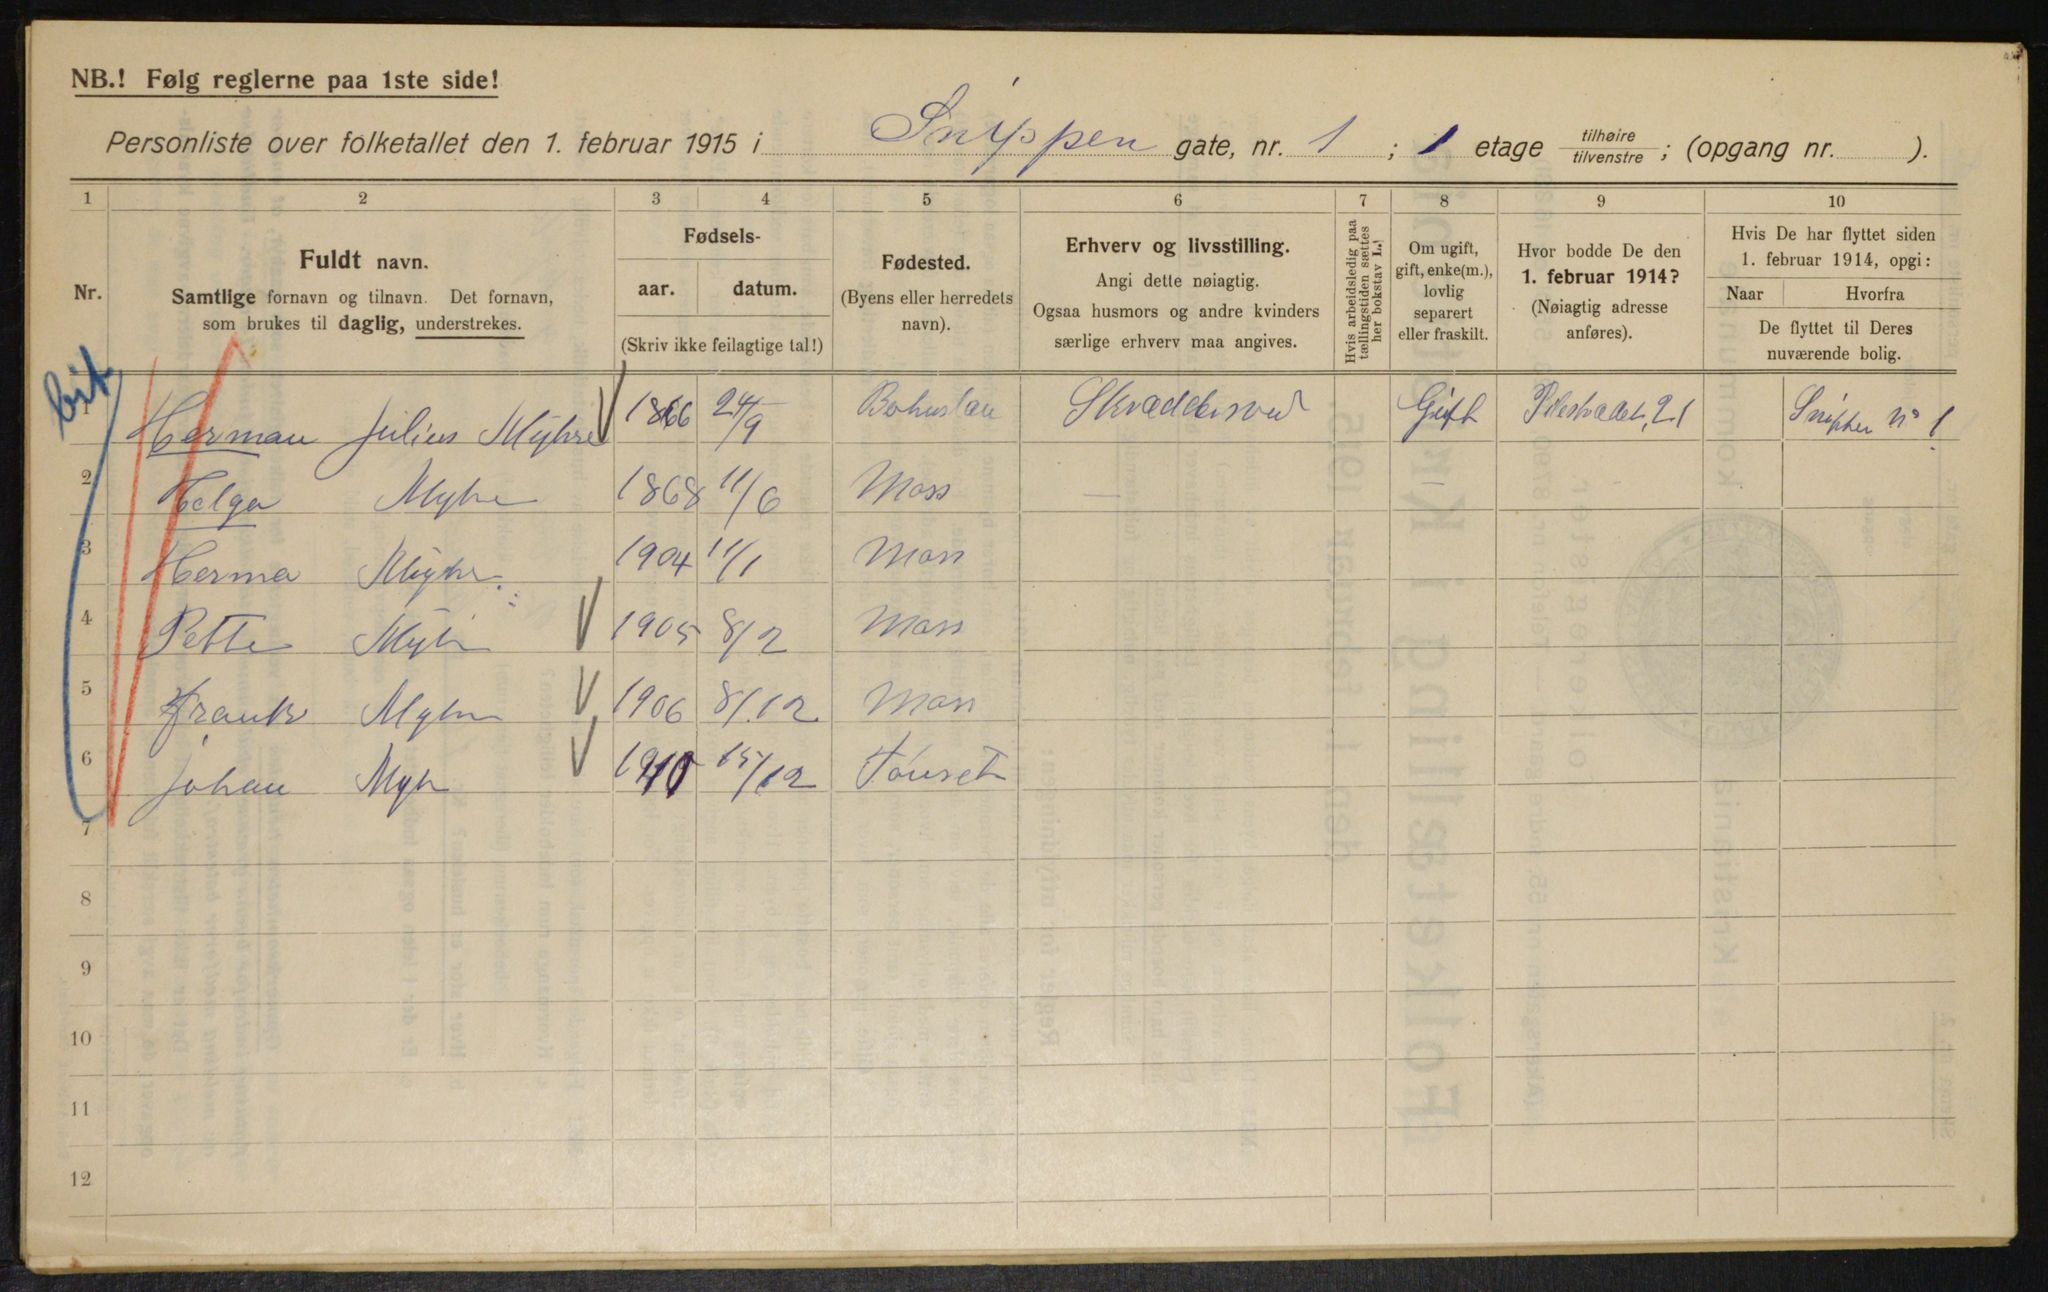 NB.! Følg reglerne paa 1ste side!
Personliste over folketallet den 1. februar 1915 i Snippen gate, nr. 1 ; 1 etage tilhøire/tilvenstre ; (opgang nr. ).
1 2 3 4 5 6 7 8 9 10
Nr.
Fuldt navn.
Samtlige fornavn og tilnavn. Det fornavn,
som brukes til daglig, understrekes.
Fødsels-
aar. datum.
(Skriv ikke feilagtige tal!)
Fødested.
(Byens eller herredets
navn).
Erhverv og livsstilling.
Angi dette nøiagtig.
Ogsaa husmors og andre kvinders
særlige erhverv maa angives.
Hvis arbeidsledig paa
tællingstiden sættes
her bokstav L.!
Om ugift,
gift, enke(m.),
lovlig
separert
eller fraskilt.
Hvor bodde De den
1. februar 1914?
(Nøiagtig adresse
anføres).
Hvis De har flyttet siden
1. februar 1914, opgi:
Naar Hvorfra
De flyttet til Deres
nuværende bolig.
1 Herman Julius Myhre 1866 24/9 Bohuslan Gift 21 Snippen No 1
2 Helga Myhre 1868 11/6 Moss — —
3 Herma Myhre 1904 11/1 Moss
4 Petter Myhr 1905 8/2 Moss
5 Frank Myhre 1906 8/12 Moss
6 Johan Myhr 1910 15/12 Tønset
7
8
9
10
11
12